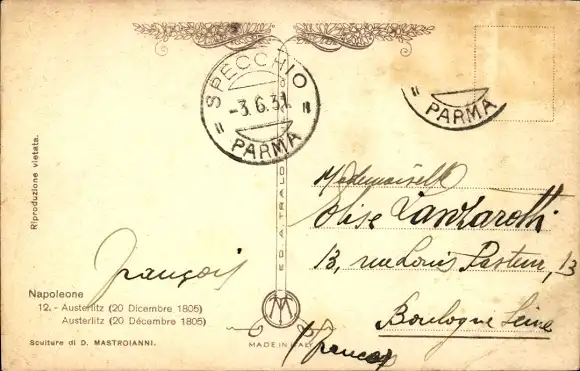 SPECCHIO
-3.6.31
= PARMA =
= PARMA
Riproduzione vietata.
ED. A. TRALDI
Mademoiselle
Elise Lanzarotti
13, rue Louis Pasteur, 13
Boulogne Seine
(France)
françois
Napoleone
12. - Austerlitz (20 Dicembre 1805)
Austerlitz (20 Décembre 1805)
Sculture di D. MASTROIANNI.
MADE IN ITALY